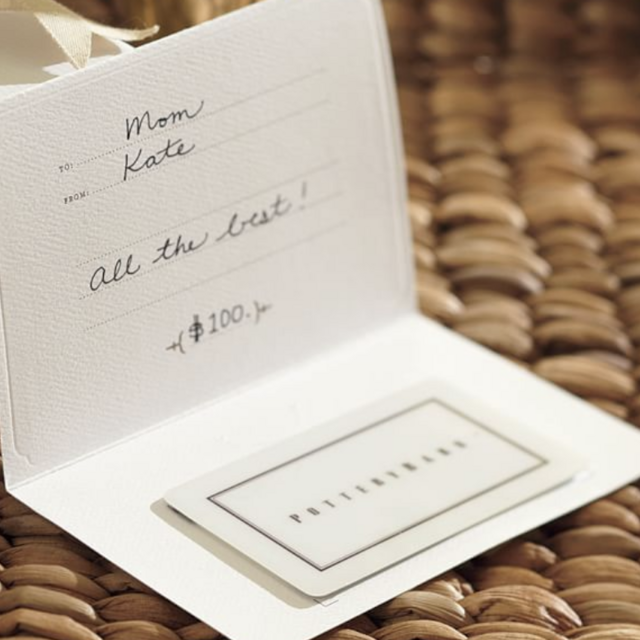 TO: Mom
FROM: Kate
All the best!
($100.)
POTTERY BARN